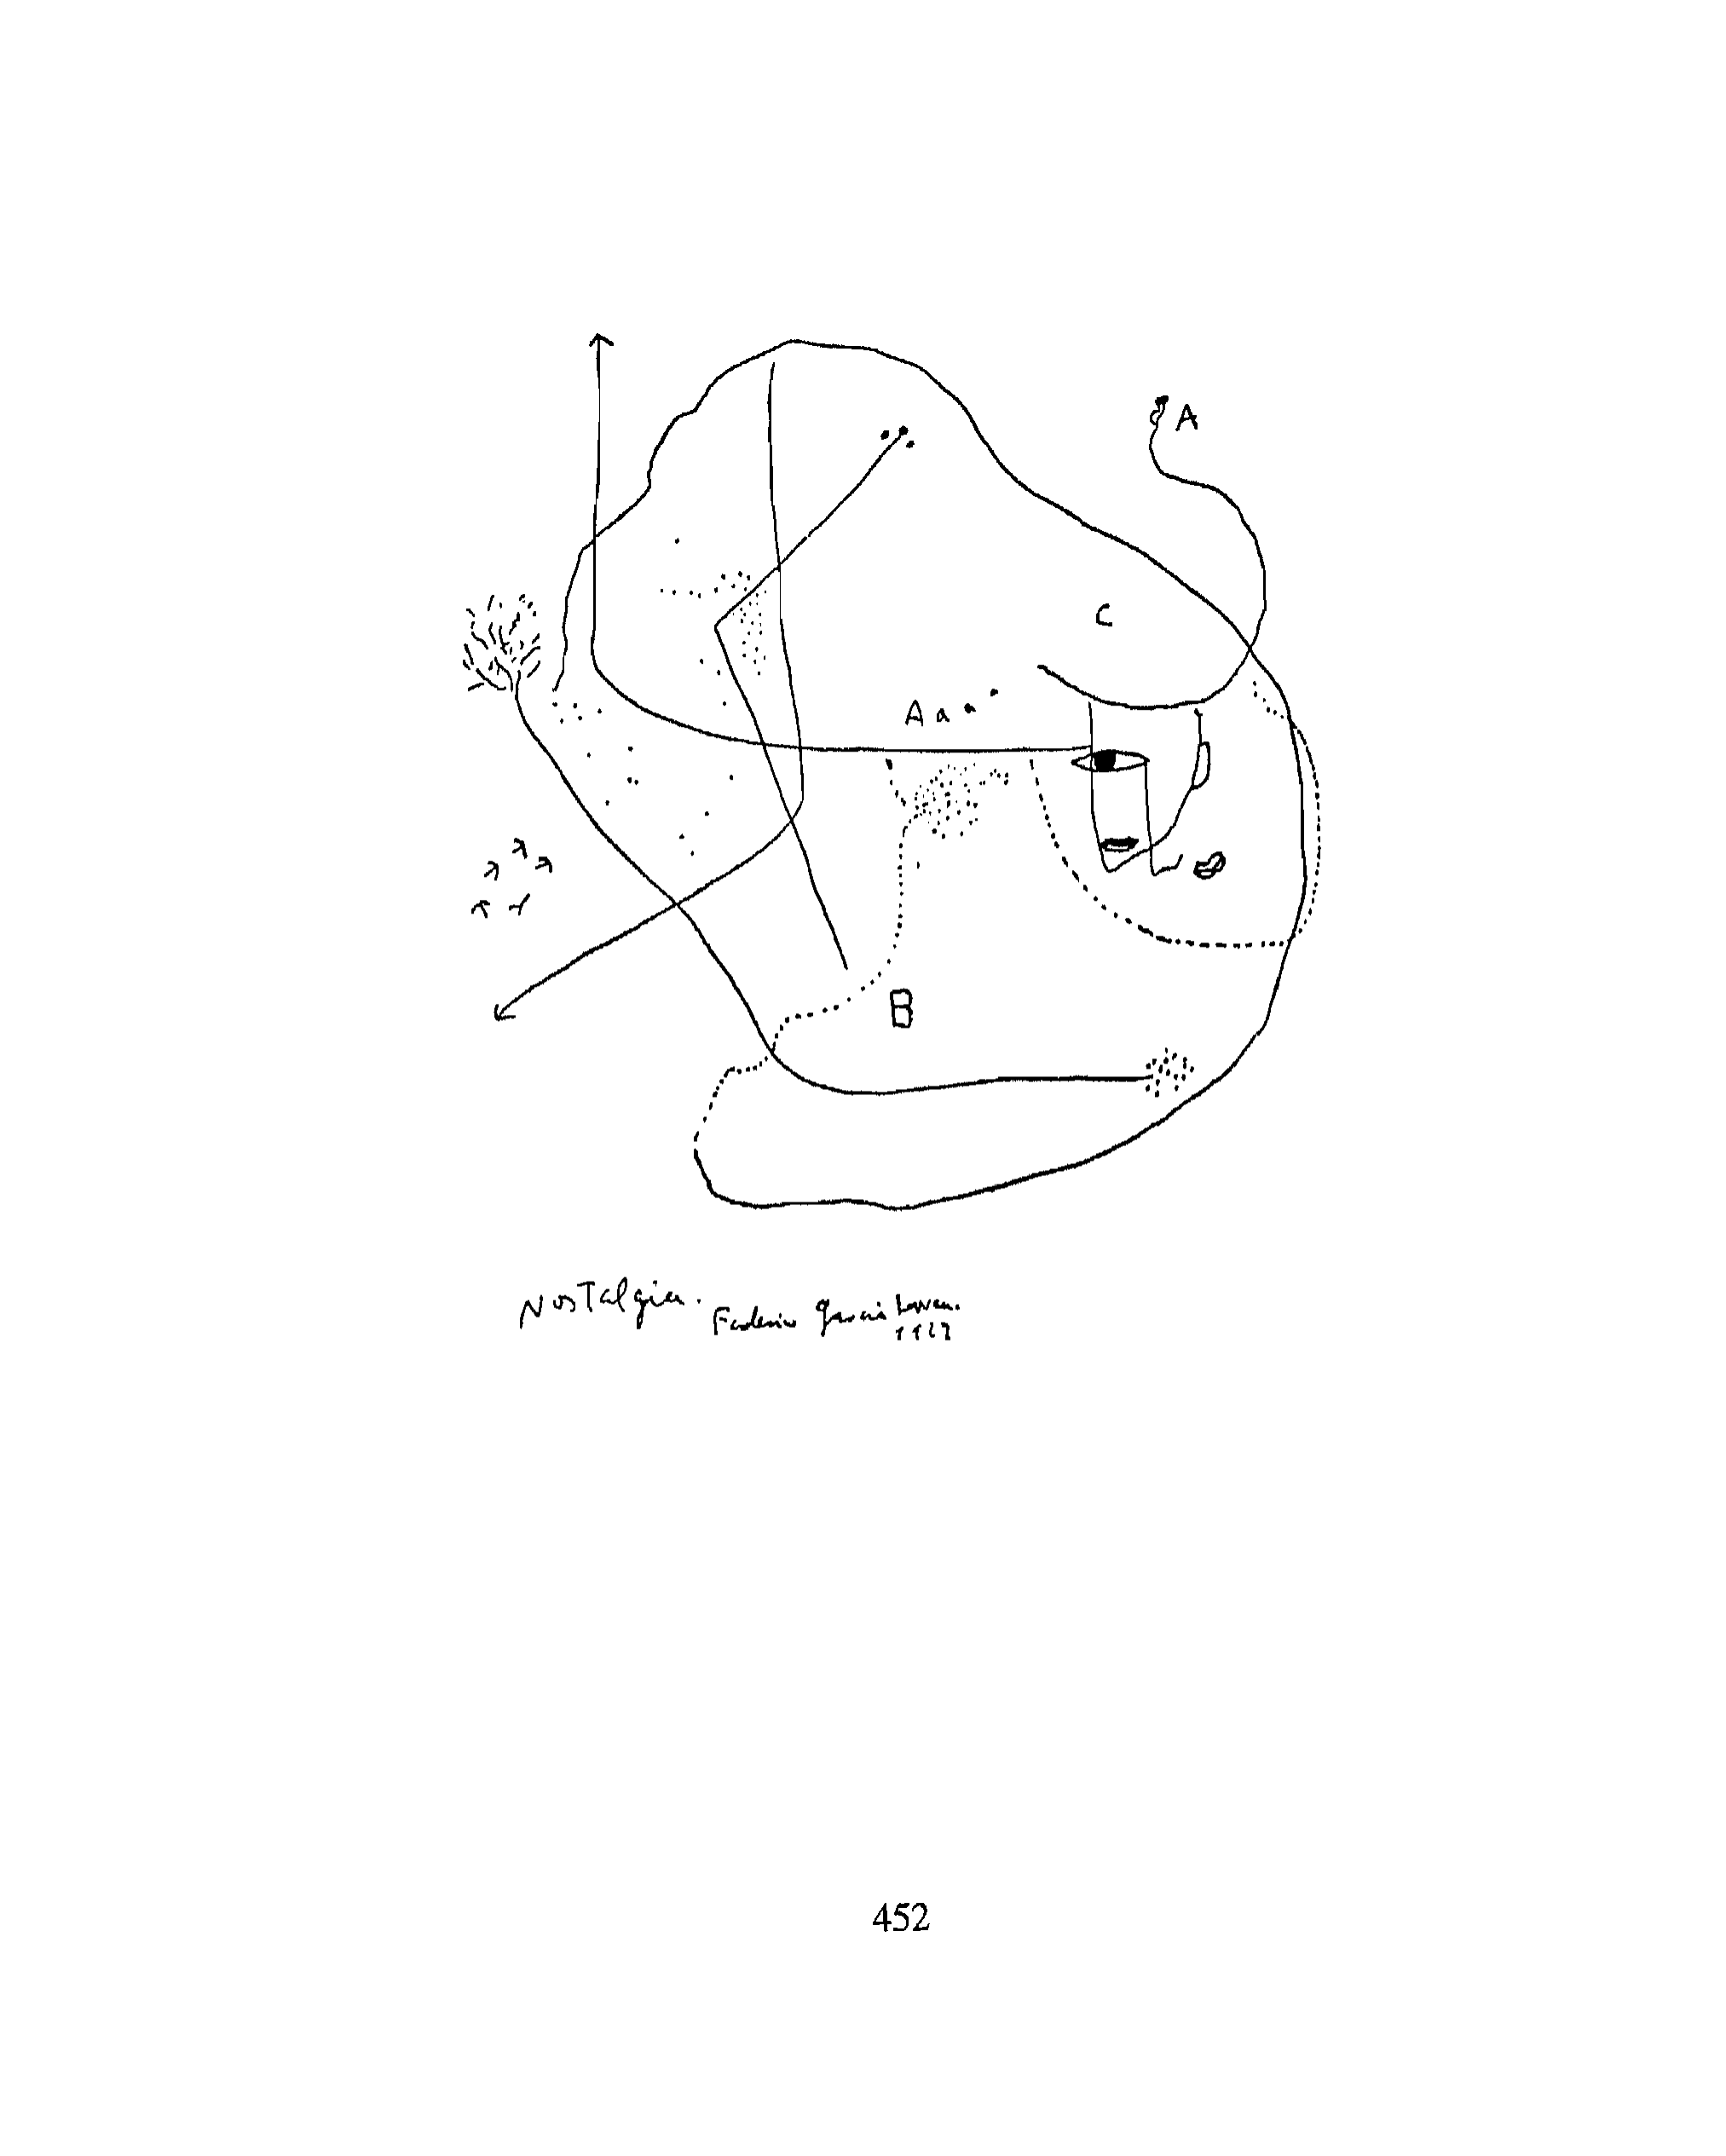 A
C
A a a
B
Nostalgia.
Federico García Lorca.
1927
452